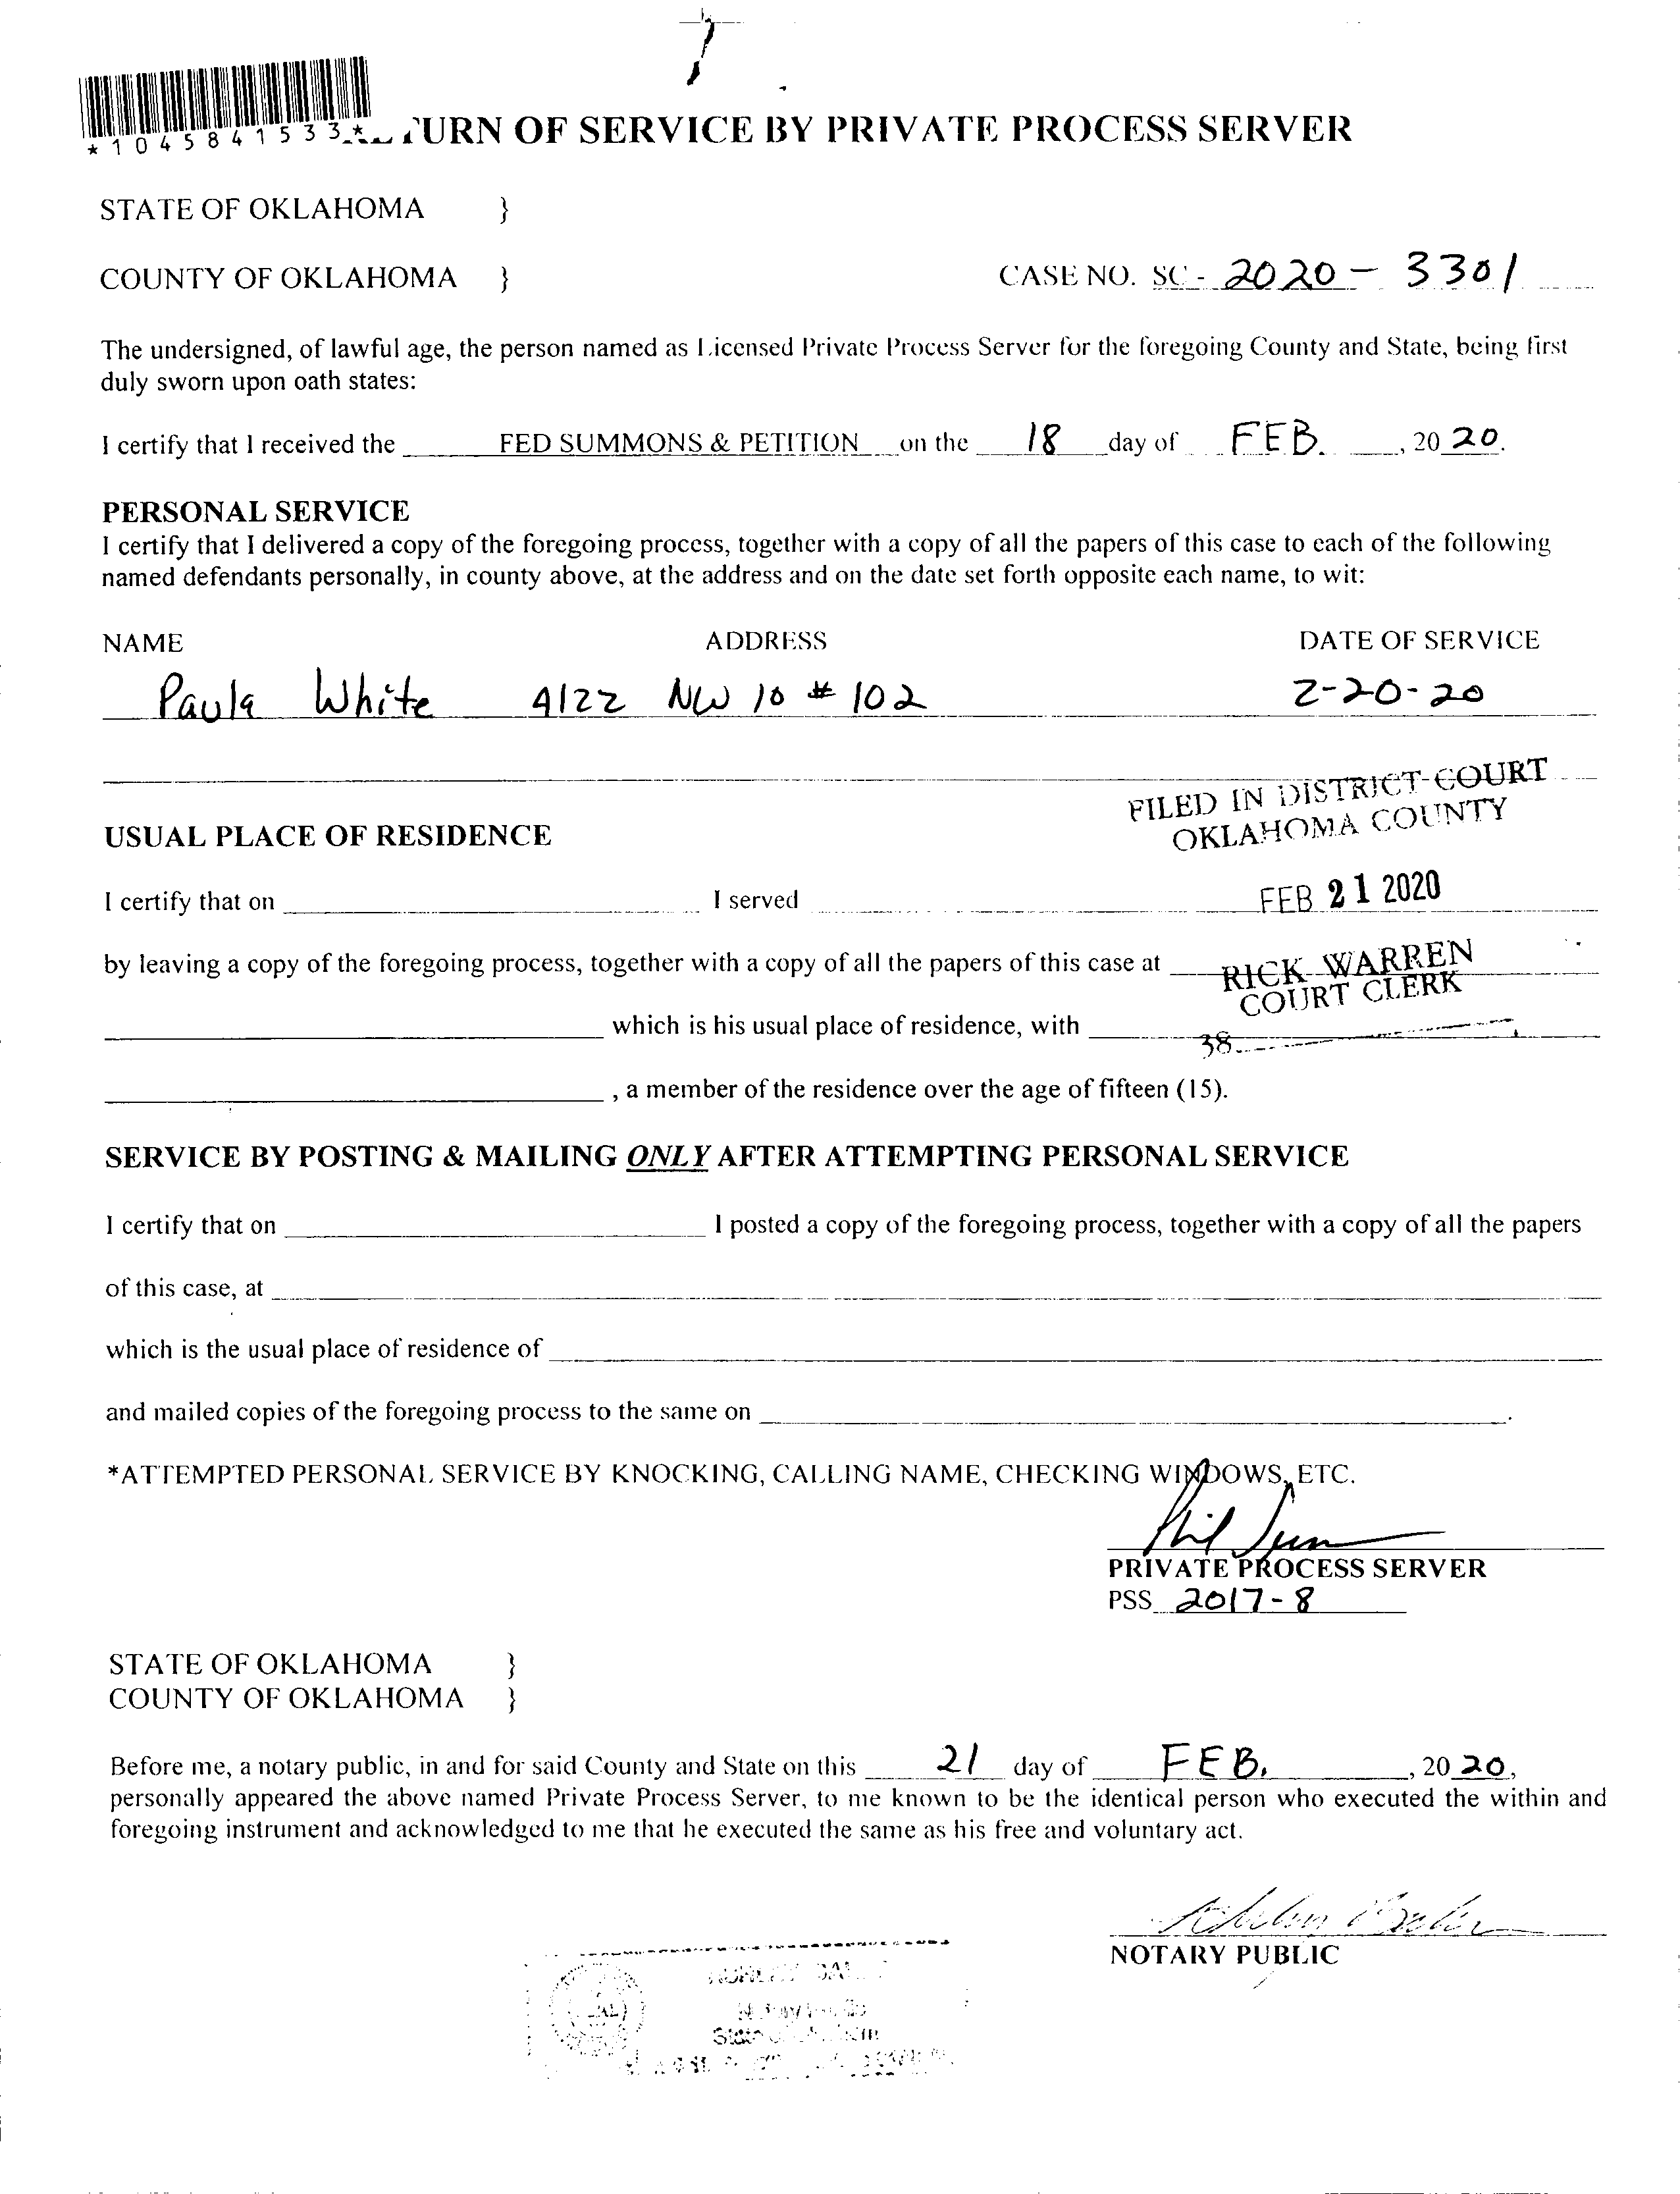 *1045841533*
TURN OF SERVICE BY PRIVATE PROCESS SERVER
STATE OF OKLAHOMA }
COUNTY OF OKLAHOMA } CASE NO. SC - 2020 - 3301
The undersigned, of lawful age, the person named as Licensed Private Process Server for the foregoing County and State, being first
duly sworn upon oath states:
I certify that I received the FED SUMMONS & PETITION on the 18 day of FEB. , 20 20.
PERSONAL SERVICE
I certify that I delivered a copy of the foregoing process, together with a copy of all the papers of this case to each of the following
named defendants personally, in county above, at the address and on the date set forth opposite each name, to wit:
NAME ADDRESS DATE OF SERVICE
Paula White 4122 NW 10 # 102 2-20-20
FILED IN DISTRICT COURT
OKLAHOMA COUNTY
USUAL PLACE OF RESIDENCE
FEB 21 2020
I certify that on I served
by leaving a copy of the foregoing process, together with a copy of all the papers of this case at
RICK WARREN
COURT CLERK
which is his usual place of residence, with
38
, a member of the residence over the age of fifteen (15).
SERVICE BY POSTING & MAILING ONLY AFTER ATTEMPTING PERSONAL SERVICE
I certify that on I posted a copy of the foregoing process, together with a copy of all the papers
of this case, at
which is the usual place of residence of
and mailed copies of the foregoing process to the same on .
*ATTEMPTED PERSONAL SERVICE BY KNOCKING, CALLING NAME, CHECKING WINDOWS, ETC.
PRIVATE PROCESS SERVER
PSS 2017-8
STATE OF OKLAHOMA }
COUNTY OF OKLAHOMA }
Before me, a notary public, in and for said County and State on this 21 day of FEB. , 20 20,
personally appeared the above named Private Process Server, to me known to be the identical person who executed the within and
foregoing instrument and acknowledged to me that he executed the same as his free and voluntary act.
NOTARY PUBLIC